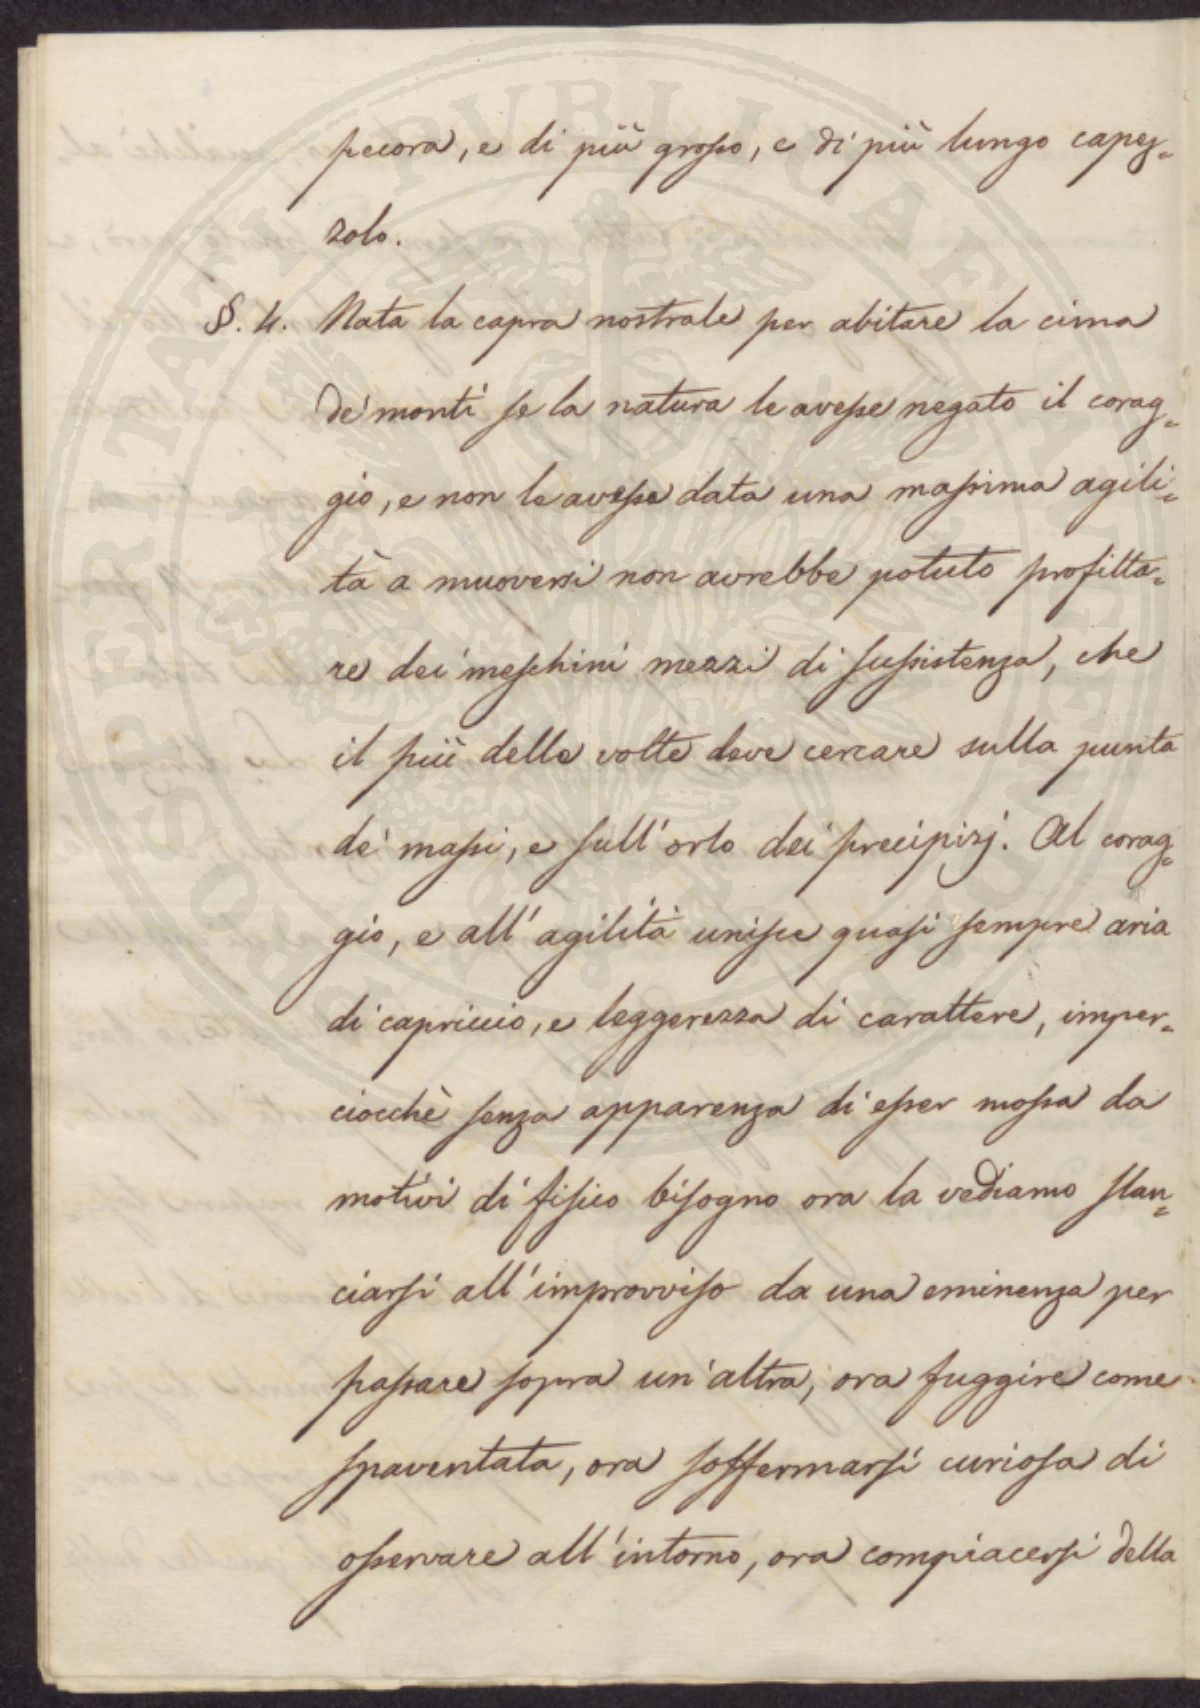 pecora, e di più grosso, e di più lungo capez=
zolo.
§. 4. Nata la capra nostrale per abitare la cima
de' monti se la natura le avesse negato il corag=
gio, e non le avesse data una massima agili=
tà a muoversi non avrebbe potuto profitta=
re dei meschini mezzi di sussistenza, che
il più delle volte deve cercare sulla punta
de' massi, e sull'orlo dei precipizj. Al corag=
gio, e all'agilità unisce quasi sempre aria
di capriccio, e leggerezza di carattere, imper=
ciocchè senza apparenza di esser mossa da
motivi di fisico bisogno ora la vediamo slan=
ciarsi all'improvviso da una eminenza per
passare sopra un'altra, ora fuggire come
spaventata, ora soffermarsi curiosa di
osservare all'intorno, ora compiacersi della
PROSPERITATI PUBLICAE AUGENDAE